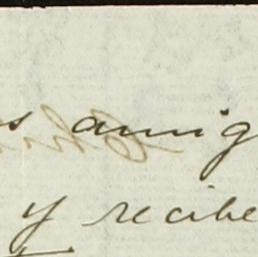 s amig
y recibe